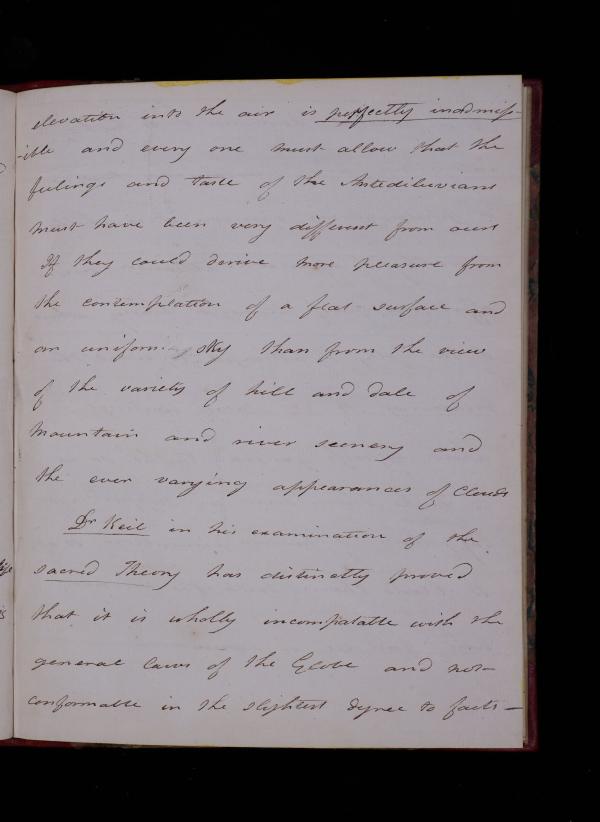 elevation into the air is perfectly inadmiss-
-ible and every one must allow that the
feelings and taste of the Antediluvians
must have been very different from ours
If they could derive more pleasure from
the contemplation of a flat surface and
an uniform sky than from the view
of the variety of hill and dale of
mountain and river scenery and
the ever varying appearances of Clouds
Dr Keil in his examination of the
sacred Theory has distinctly proved
that it is wholly incompatable with the
general laws of the Globe and not
conformable in the slightest degree to facts —